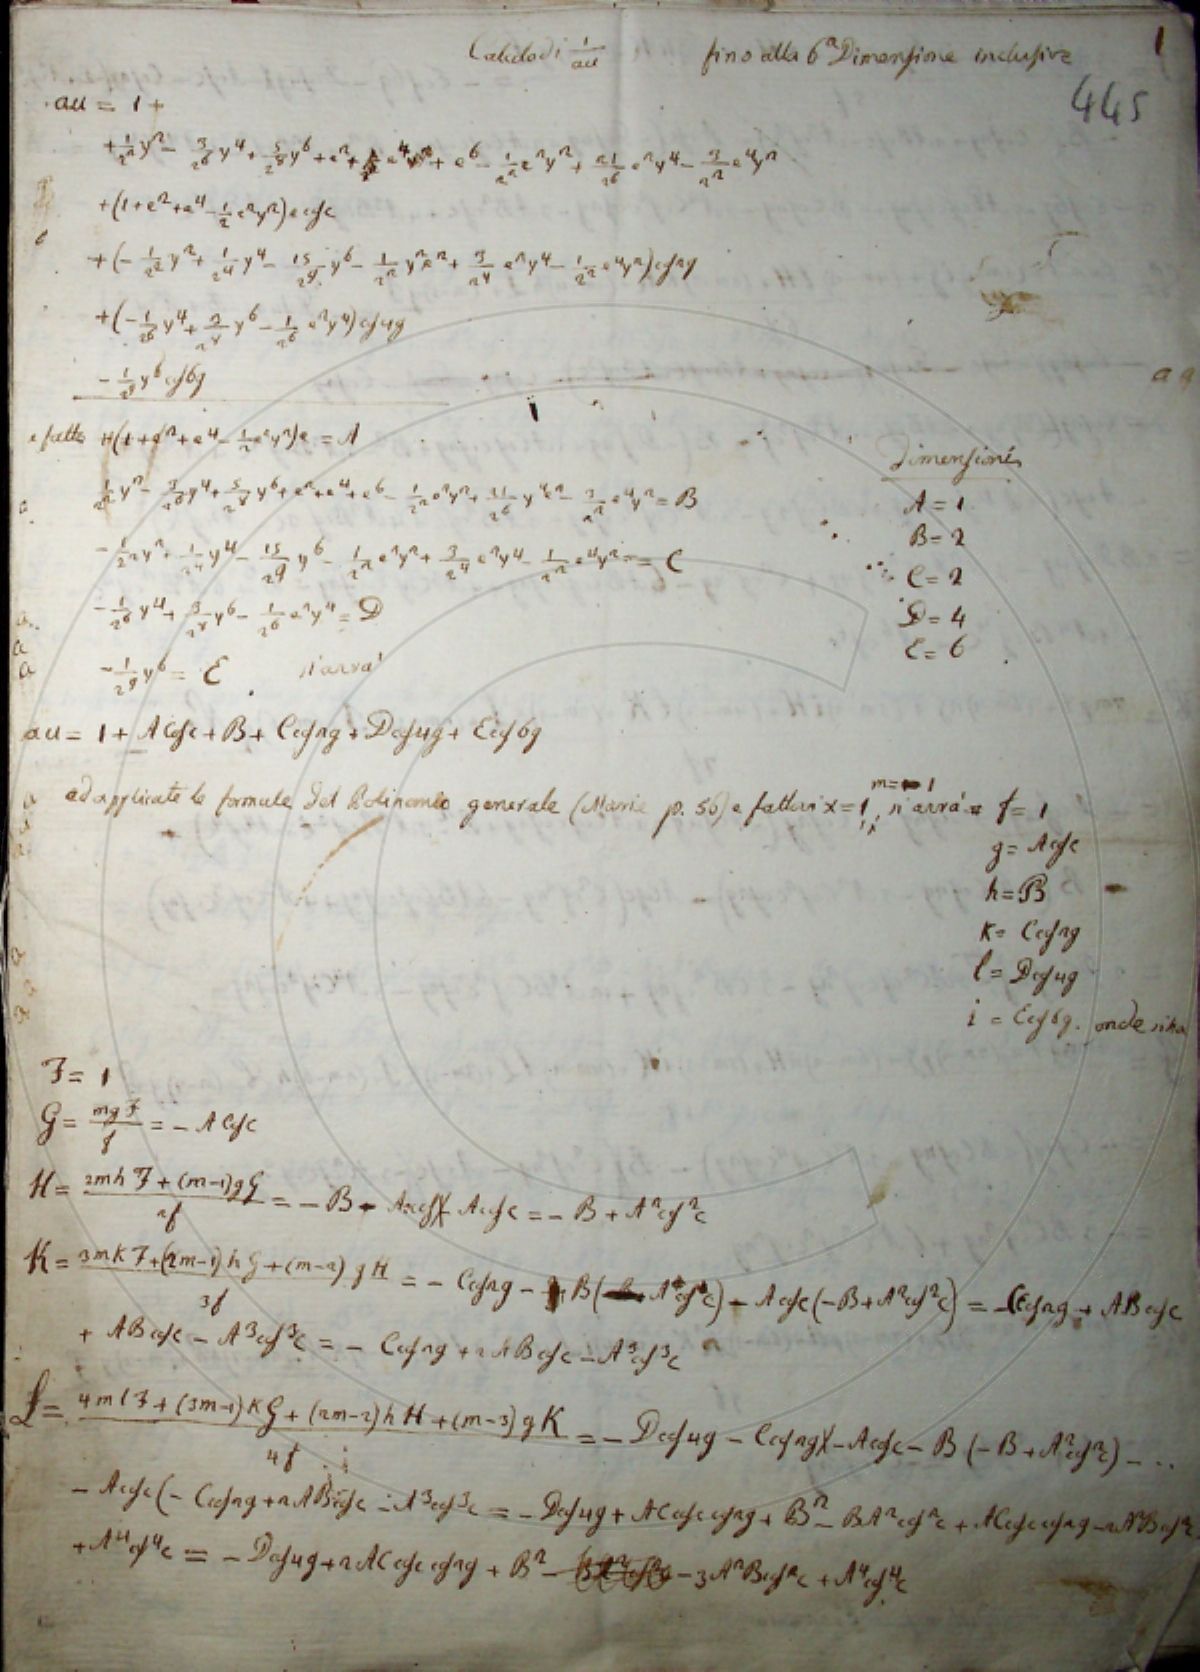 1
Calcolo di 1/au fino alla 6ª Dimensione inclusive
445
au = 1 +
+ 1/2² y² − 3/2⁶ y⁴ + 5/2⁸ y⁶ + e² + e⁴ + e⁶ − 1/2² e² y² + 21/2⁶ e² y⁴ − 3/2² e⁴ y²
+ (1 + e² + e⁴ − 1/2 e² y²) e cos c
+ (− 1/2² y² + 1/2⁴ y⁴ − 15/2⁹ y⁶ − 1/2² y² e² + 3/2⁴ e² y⁴ − 1/2² e⁴ y²) cos 2g
+ (− 1/2⁶ y⁴ + 3/2⁸ y⁶ − 1/2⁶ e² y⁴) cos 4g
− 1/2⁹ y⁶ cos 6g
e fatto + (1 + e² + e⁴ − 1/2 e² y²) e = A
Dimensioni
1/2² y² − 3/2⁶ y⁴ + 5/2⁸ y⁶ + e² + e⁴ + e⁶ − 1/2² e² y² + 21/2⁶ y⁴ e² − 3/2² e⁴ y² = B
A = 1
B = 2
− 1/2² y² + 1/2⁴ y⁴ − 15/2⁹ y⁶ − 1/2² e² y² + 3/2⁴ e² y⁴ − 1/2² e⁴ y² = C
C = 2
− 1/2⁶ y⁴ + 3/2⁸ y⁶ − 1/2⁶ e² y⁴ = D
D = 4
− 1/2⁹ y⁶ = E si avrà
E = 6
au = 1 + A cos c + B + C cos 2g + D cos 4g + E cos 6g
ed applicate le formule del Polinomio generale (Marie p. 56) e fattovi x = 1, m = − 1 si avrà f = 1
g = A cos c
h = B
k = C cos 2g
l = D cos 4g
i = E cos 6g. onde si ha
F = 1
G = mgF/f = − A cos c
H = 2mhF + (m−1)gG / 2f = − B − A cos c × − A cos c = − B + A² cos² c
K = 3mkF + (2m−1)hG + (m−2)gH / 3f = − C cos 2g − B(− A cos c) − A cos c (− B + A² cos² c) = − C cos 2g + AB cos c
+ AB cos c − A³ cos³ c = − C cos 2g + 2AB cos c − A³ cos³ c
L = 4mlF + (3m−1)kG + (2m−2)hH + (m−3)gK / 4f = − D cos 4g − C cos 2g × − A cos c − B (− B + A² cos² c) − ...
− A cos c (− C cos 2g + 2AB cos c − A³ cos³ c = − D cos 4g + AC cos c cos 2g + B² − BA² cos² c + AC cos c cos 2g − 2A²B cos² c
+ A⁴ cos⁴ c = − D cos 4g + 2AC cos c cos 2g + B² − 3A²B cos² c + A⁴ cos⁴ c